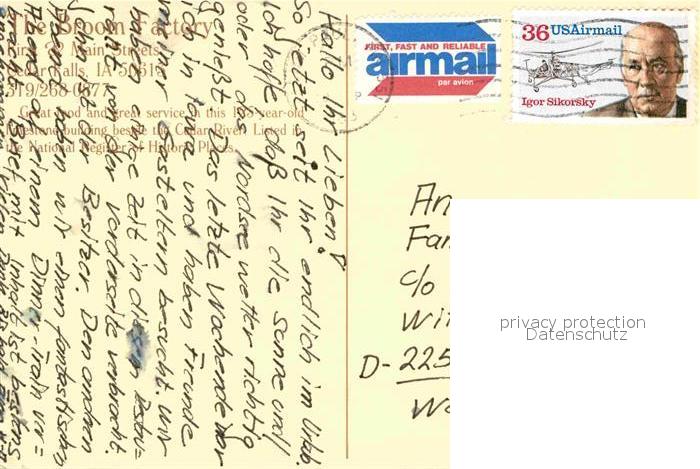 The Broom Factory
First & Main Streets
Cedar Falls, IA 50613
319/268-0877
Great food and great service in this 1 -year-old
limestone building beside the Cedar River. Listed in
the National Register of Historic Places.
Hallo Ihr Lieben!
So jetzt seit ihr endlich im Urlb.
Ich hoffe daß Ihr die Sonne und/
oder das Nordsee wetter richtig
genießt. Das letzte Wochenende
wir in und haben Freunde
von meiner Gasteltern besucht. Wir
haben lange Zeit in diesem Restau=
rant auf der Vorderseite verbracht.
sind der Besitzer. Den andern
Abend haben wir einen fantastischen
Abend auf einem Dinner-Train ver=
bracht. mit Inhalt ist bestens
FIRST, FAST AND RELIABLE
airmail
par avion
36 USAirmail
Igor Sikorsky
An
Fa
c/o
Wi
D- 225
We
privacy protection
Datenschutz